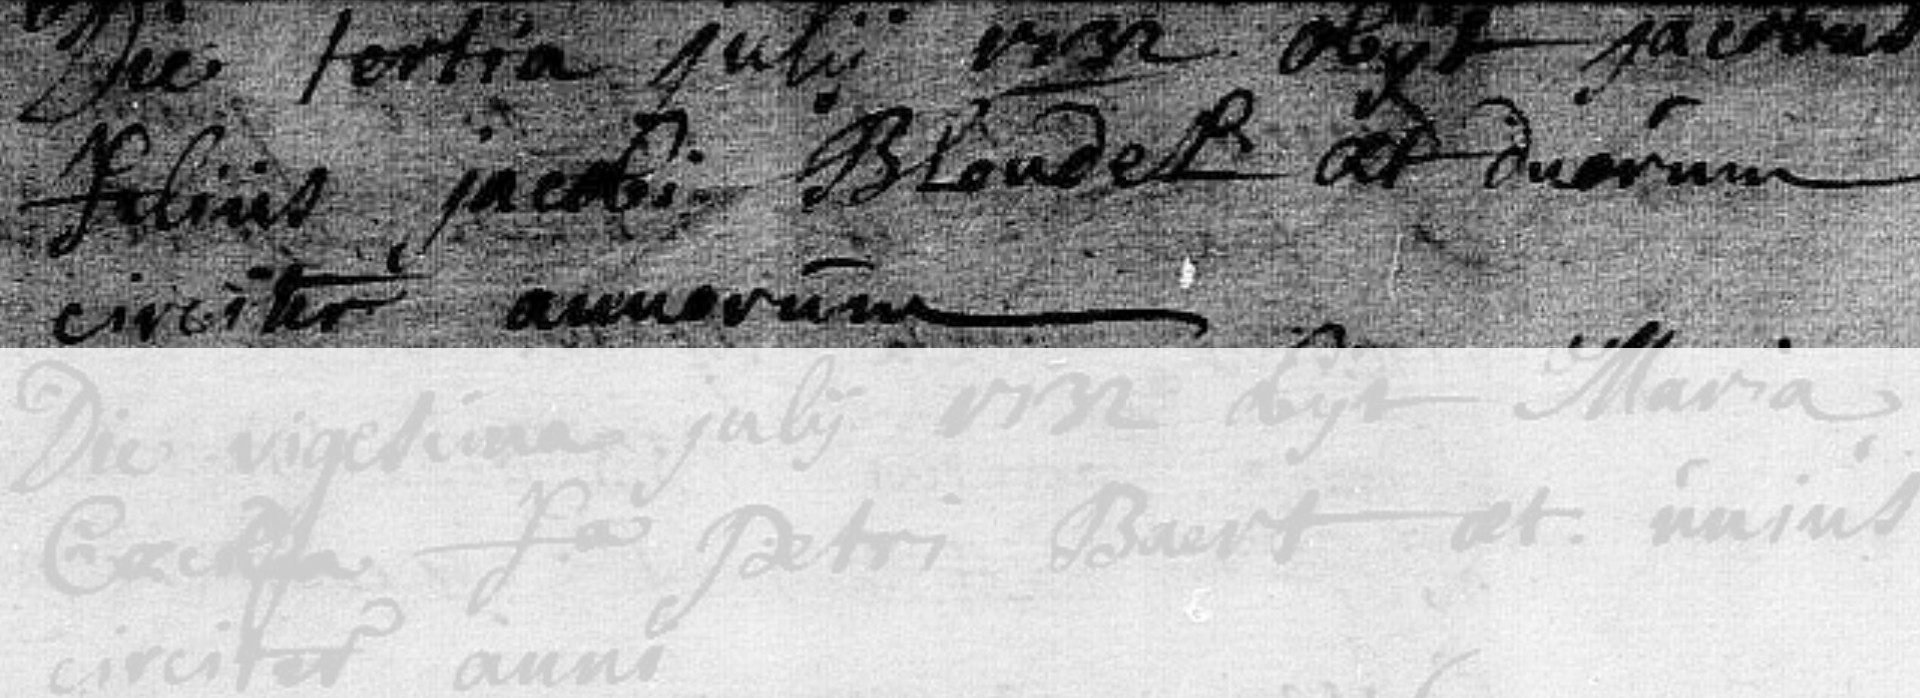 Die tertia julij 1732 obijt jacobus
Filius jacobi Blondel æt duorum
circiter annorum
Die vigesima julij 1732 obijt Maria
fa petri Baert æt. unius
circiter anni